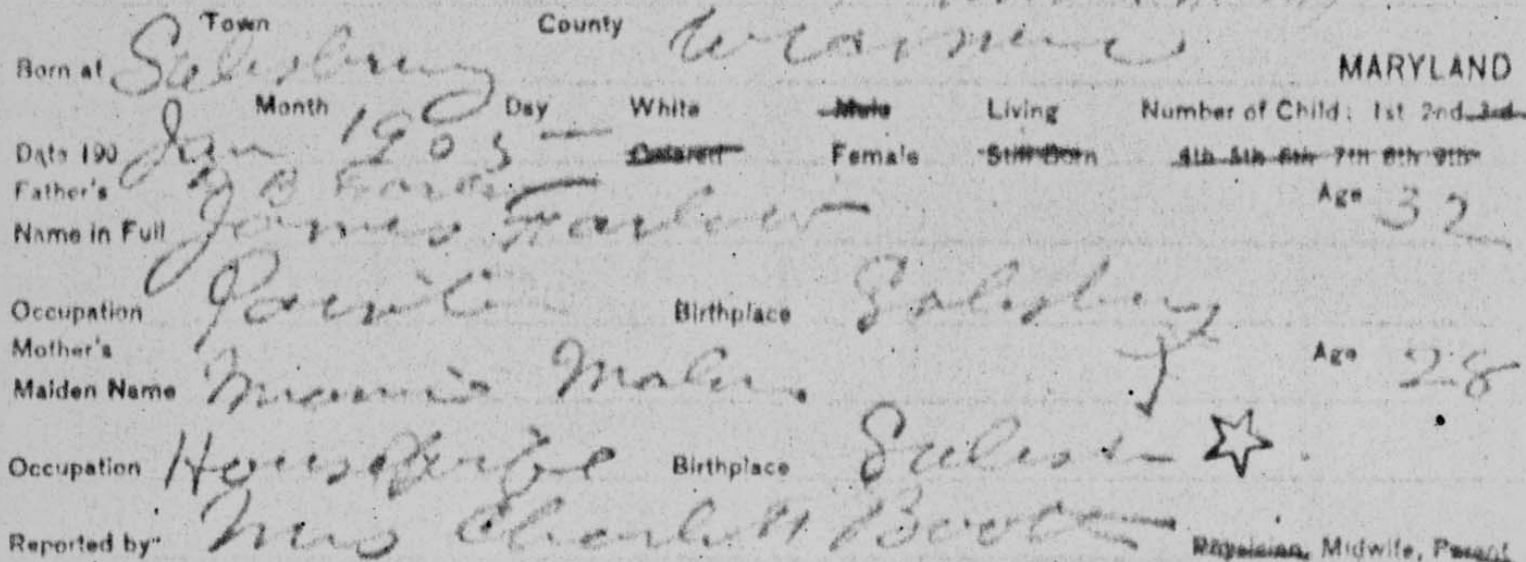 Town County
Born at Salisbury MARYLAND
Month Day White Male Living Number of Child: 1st 2nd 3rd
Date 190 Jan 1905 Colored Female Still Born 4th 5th 6th 7th 8th 9th
Father's Age 32
Name in Full James Farlow
Occupation Birthplace Salisbury
Mother's Age 28
Maiden Name
Occupation Housewife Birthplace
Reported by Mrs Physician, Midwife, Parent